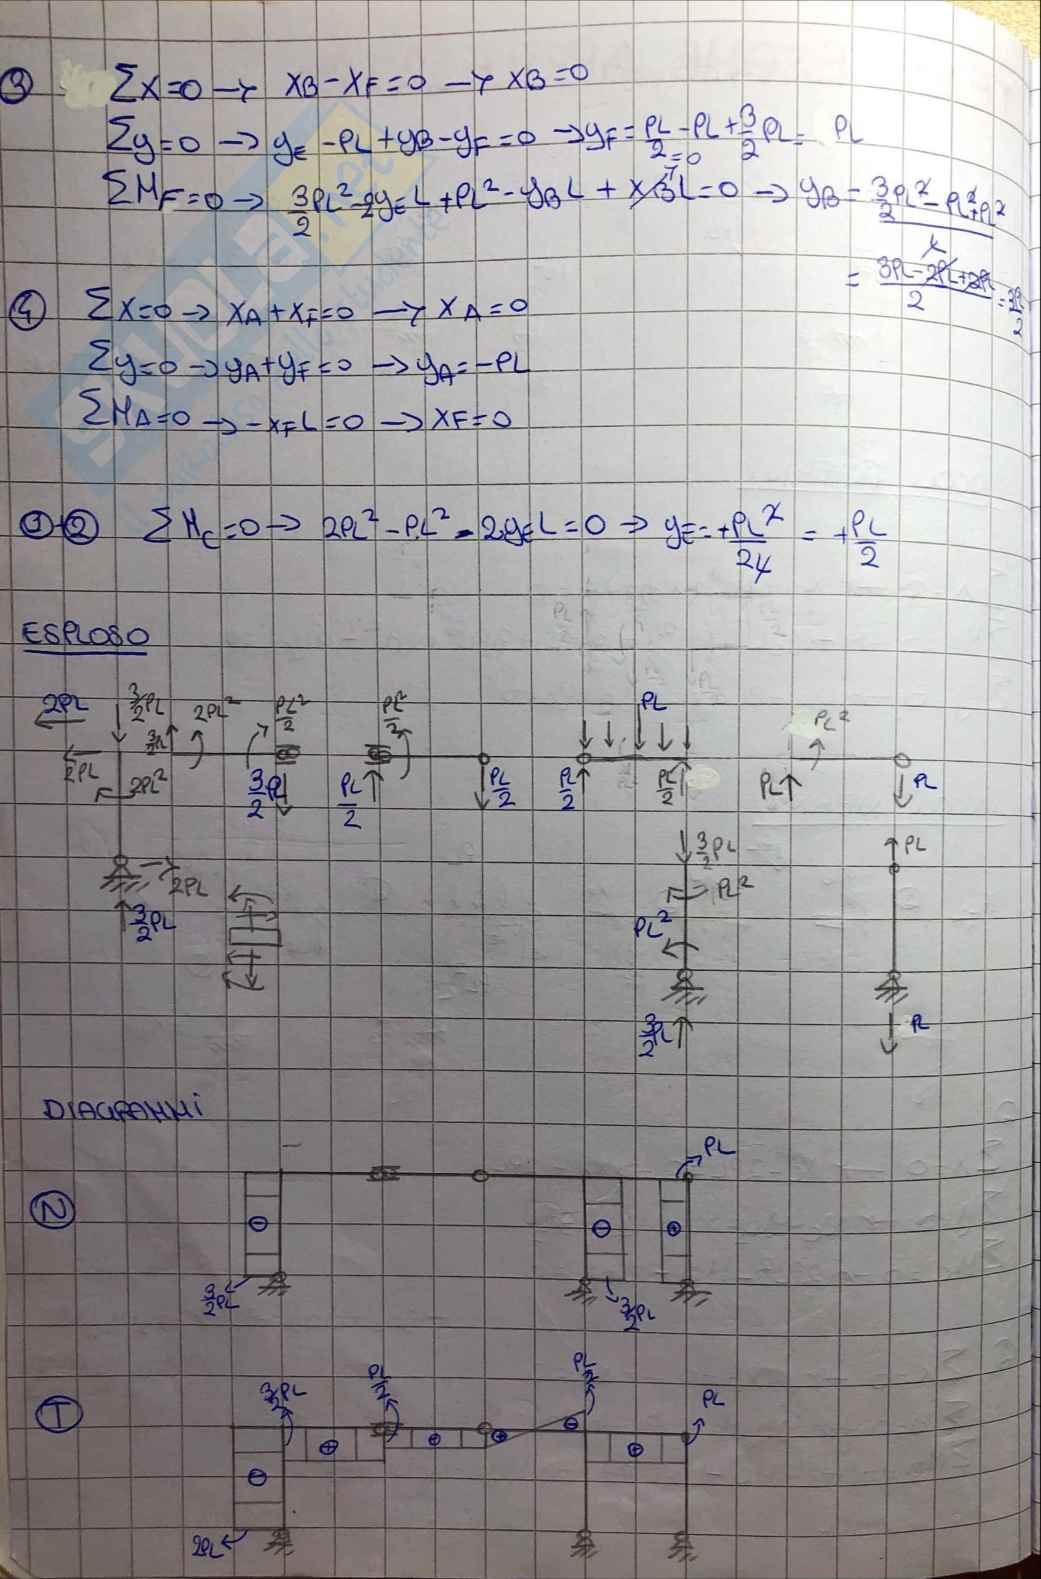 ③ ΣX=0 → XB-XF=0 → XB=0
Σy=0 → yE-PL+yB-yF=0 → yF=PL/2-PL+3/2PL= PL
ΣMF=0 → 3/2PL²-2yEL+PL²-yBL+XBL=0 → yB=
=0
④ ΣX=0 → XA+XF=0 → XA=0
Σy=0 → yA+yF=0 → yA=-PL
ΣMA=0 → -XFL=0 → XF=0
①-② ΣMC=0 → 2PL²-PL²-2yEL=0 → yE=+PL²/2L = +PL/2
ESPLOSO
2PL 3/2PL 2PL² PL²/2 PL²/2 PL PL²
2PL 2PL² 3/2PL PL/2 PL/2 PL/2 PL/2 PL PL
2PL 3/2PL PL
3/2PL PL² PL²
3/2PL PL
DIAGRAMMI
PL
N ⊖ ⊖ ⊕
3/2PL 3/2PL
3/2PL PL/2 PL/2 PL
T ⊖ ⊕ ⊕ ⊕ ⊖ ⊕
2PL